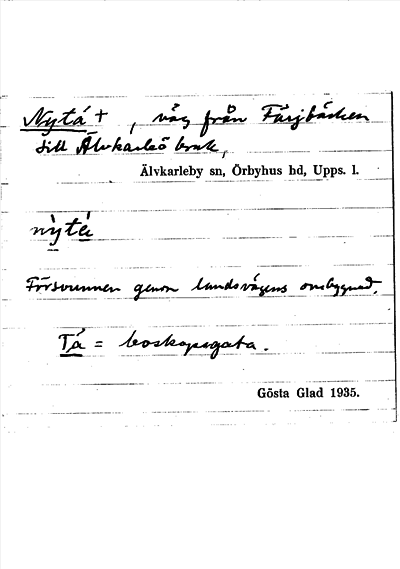 Nytå +, väg från Färjbäcken
till Älvkarleö bruk,
Älvkarleby sn, Örbyhus hd, Upps. l.
nỳtá
Försvunnen genom landsvägens ombyggnad.
Tå = boskapsgata.
Gösta Glad 1935.